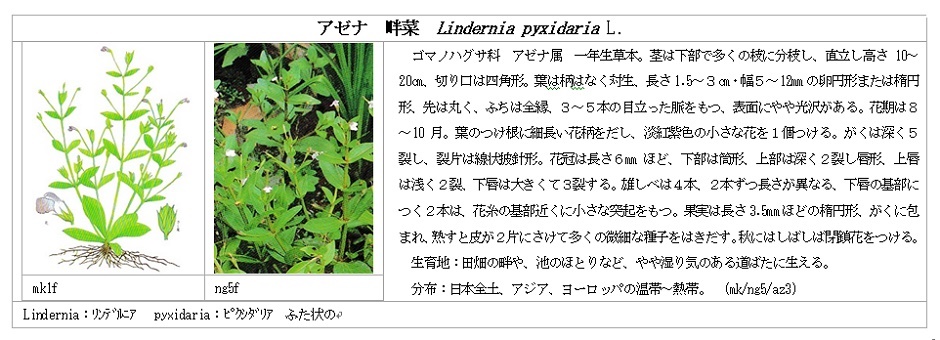 アゼナ　畔菜　Lindernia pyxidaria L.
ゴマノハグサ科　アゼナ属　一年生草本。茎は下部で多くの枝に分枝し、直立し高さ 10～
20cm、切り口は四角形。葉は柄はなく対生、長さ 1.5～３cm・幅５～12mm の卵円形または楕円
形、先は丸く、ふちは全縁、３～５本の目立った脈をもつ、表面にやや光沢がある。花期は８
～10 月。葉のつけ根に細長い花柄をだし、淡紅紫色の小さな花を１個つける。がくは深く５
裂し、裂片は線状披針形。花冠は長さ６mm ほど、下部は筒形、上部は深く２裂し唇形、上唇
は浅く２裂、下唇は大きくて３裂する。雄しべは４本、２本ずつ長さが異なる、下唇の基部に
つく２本は、花糸の基部近くに小さな突起をもつ。果実は長さ 3.5mm ほどの楕円形、がくに包
まれ、熟すと皮が２片にさけて多くの微細な種子をはきだす。秋にはしばしば閉鎖花をつける。
生育地：田畑の畔や、池のほとりなど、やや湿り気のある道ばたに生える。
分布：日本全土、アジア、ヨーロッパの温帯～熱帯。　(mk/ng5/az3)
mk1f
ng5f
Lindernia：ﾘﾝﾃﾞﾙﾆｱ　pyxidaria：ﾋﾟｸｼﾀﾞﾘｱ　ふた状の